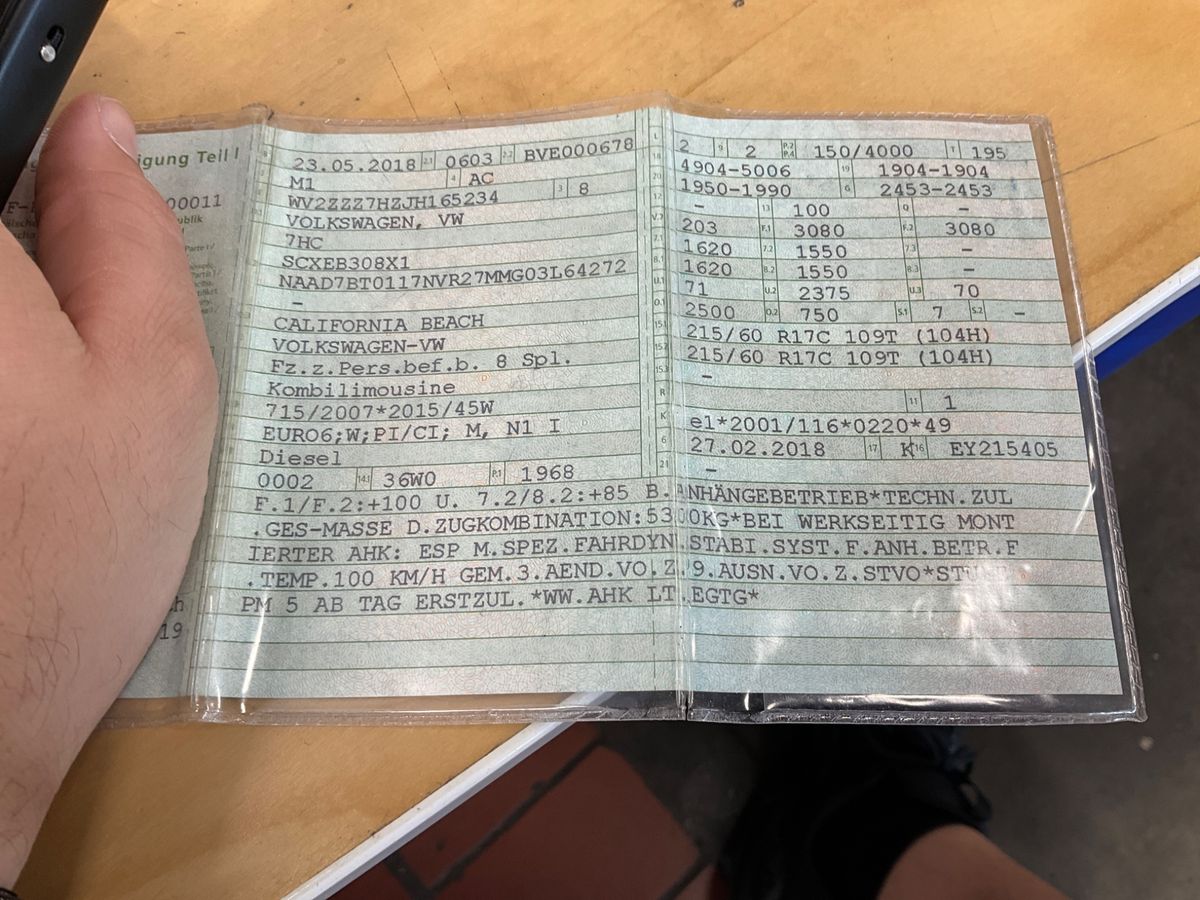 igung Teil I
00011
ublik
23.05.2018 2.1 0603 2.2 BVE000678
M1 4 AC
WV2ZZZ7HZJH165234 3 8
VOLKSWAGEN, VW
7HC
SCXEB308X1
NAAD7BT0117NVR27MMG03L64272
–
CALIFORNIA BEACH
VOLKSWAGEN-VW
Fz.z.Pers.bef.b. 8 Spl.
Kombilimousine
715/2007*2015/45W
EURO6;W;PI/CI; M, N1 I
Diesel
0002 14.1 36W0 P.1 1968
L 2 9 2 P.2 P.4 150/4000 T 195
18 4904-5006 19 1904-1904
20 1950-1990 G 2453-2453
– 13 100 Q –
V.7 203 F.1 3080 F.2 3080
7.1 1620 7.2 1550 7.3 –
8.1 1620 8.2 1550 8.3 –
U.1 71 U.2 2375 U.3 70
O.1 2500 O.2 750 S.1 7 S.2 –
15.1 215/60 R17C 109T (104H)
15.2 215/60 R17C 109T (104H)
15.3 –
R 11 1
K e1*2001/116*0220*49
6 27.02.2018 17 K 16 EY215405
21 –
F.1/F.2:+100 U. 7.2/8.2:+85 B.ANHÄNGEBETRIEB*TECHN.ZUL
.GES-MASSE D.ZUGKOMBINATION:5300KG*BEI WERKSEITIG MONT
IERTER AHK: ESP M.SPEZ.FAHRDYN STABI.SYST.F.ANH.BETR.F
.TEMP.100 KM/H GEM.3.AEND.VO.Z.9.AUSN.VO.Z.STVO*
PM 5 AB TAG ERSTZUL.*WW.AHK LT.EGTG*
19